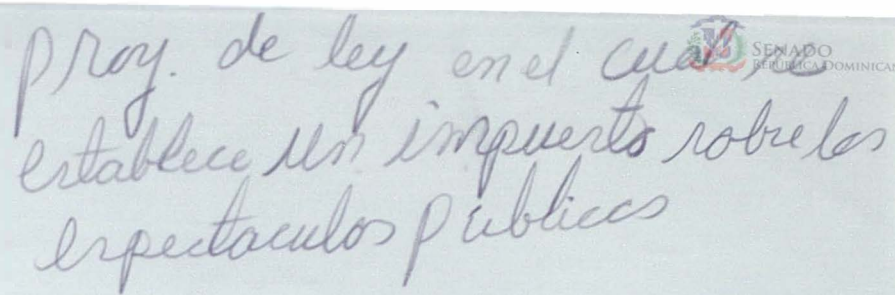 Proy. de ley en el cual se
establece un impuesto sobre los
espectaculos públicos
SENADO
REPÚBLICA DOMINICANA